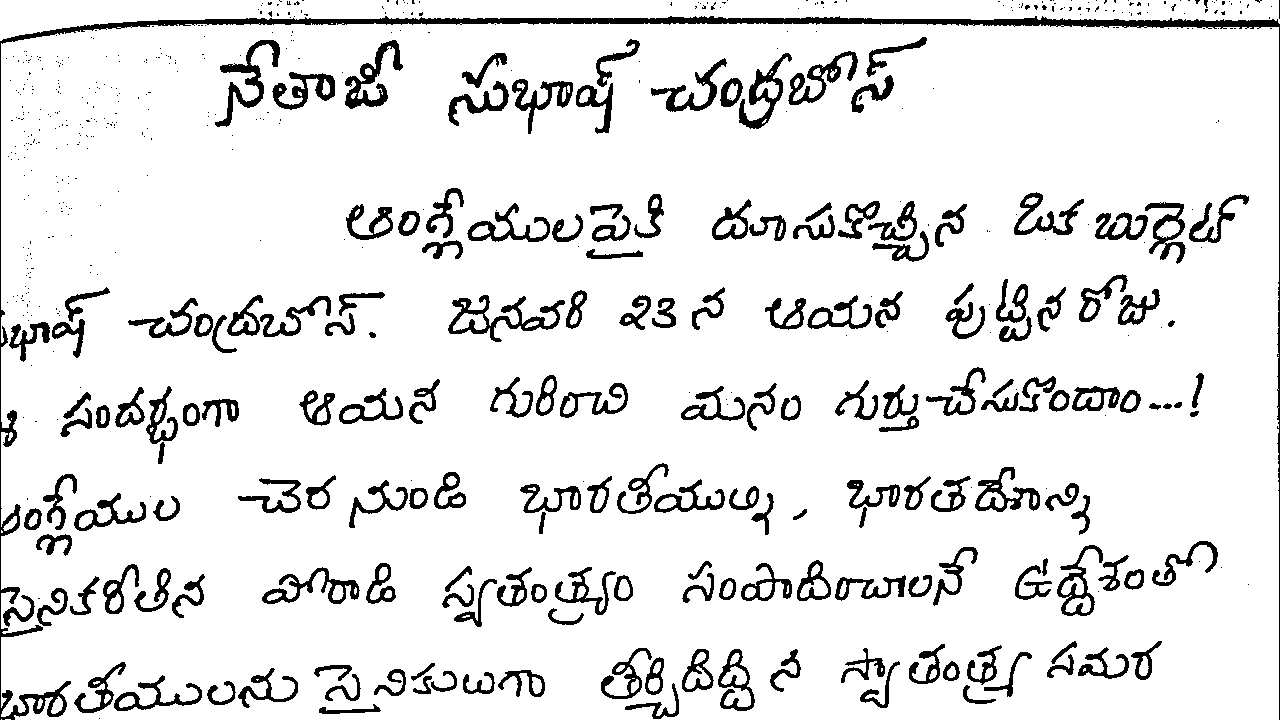 నేతాజీ సుభాష్ చంద్రబోస్
ఆంగ్లేయులపైకి దూసుకొచ్చిన ఒక బుల్లెట్
సుభాష్ చంద్రబోస్. జనవరి 23 న ఆయన పుట్టిన రోజు.
ఈ సందర్భంగా ఆయన గురించి మనం గుర్తుచేసుకొందాం...!
ఆంగ్లేయుల చెర నుండి భారతీయుల్ని, భారతదేశాన్ని
సైనికరీతిన పోరాడి స్వతంత్ర్యం సంపాదించాలనే ఉద్దేశంతో
భారతీయులను సైనికులుగా తీర్చిదిద్దిన స్వాతంత్ర్య సమర